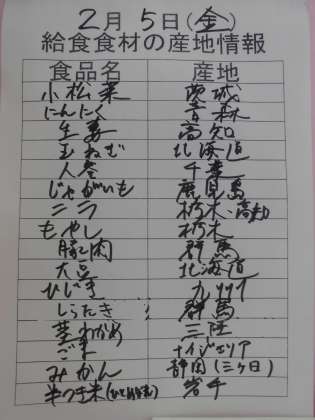 2月 5日(金)
給食食材の産地情報
食品名 産地
小松菜 茨城
にんにく 青森
生姜 高知
玉ねぎ 北海道
人参 千葉
じゃがいも 鹿児島
ニラ 栃木・高知
もやし 栃木
豚肉 群馬
大豆 北海道
ひじき 九州
しらたき 群馬
茎わかめ 三陸
ごま ナイジェリア
みかん 静岡(三ケ日)
半つき米 岩手